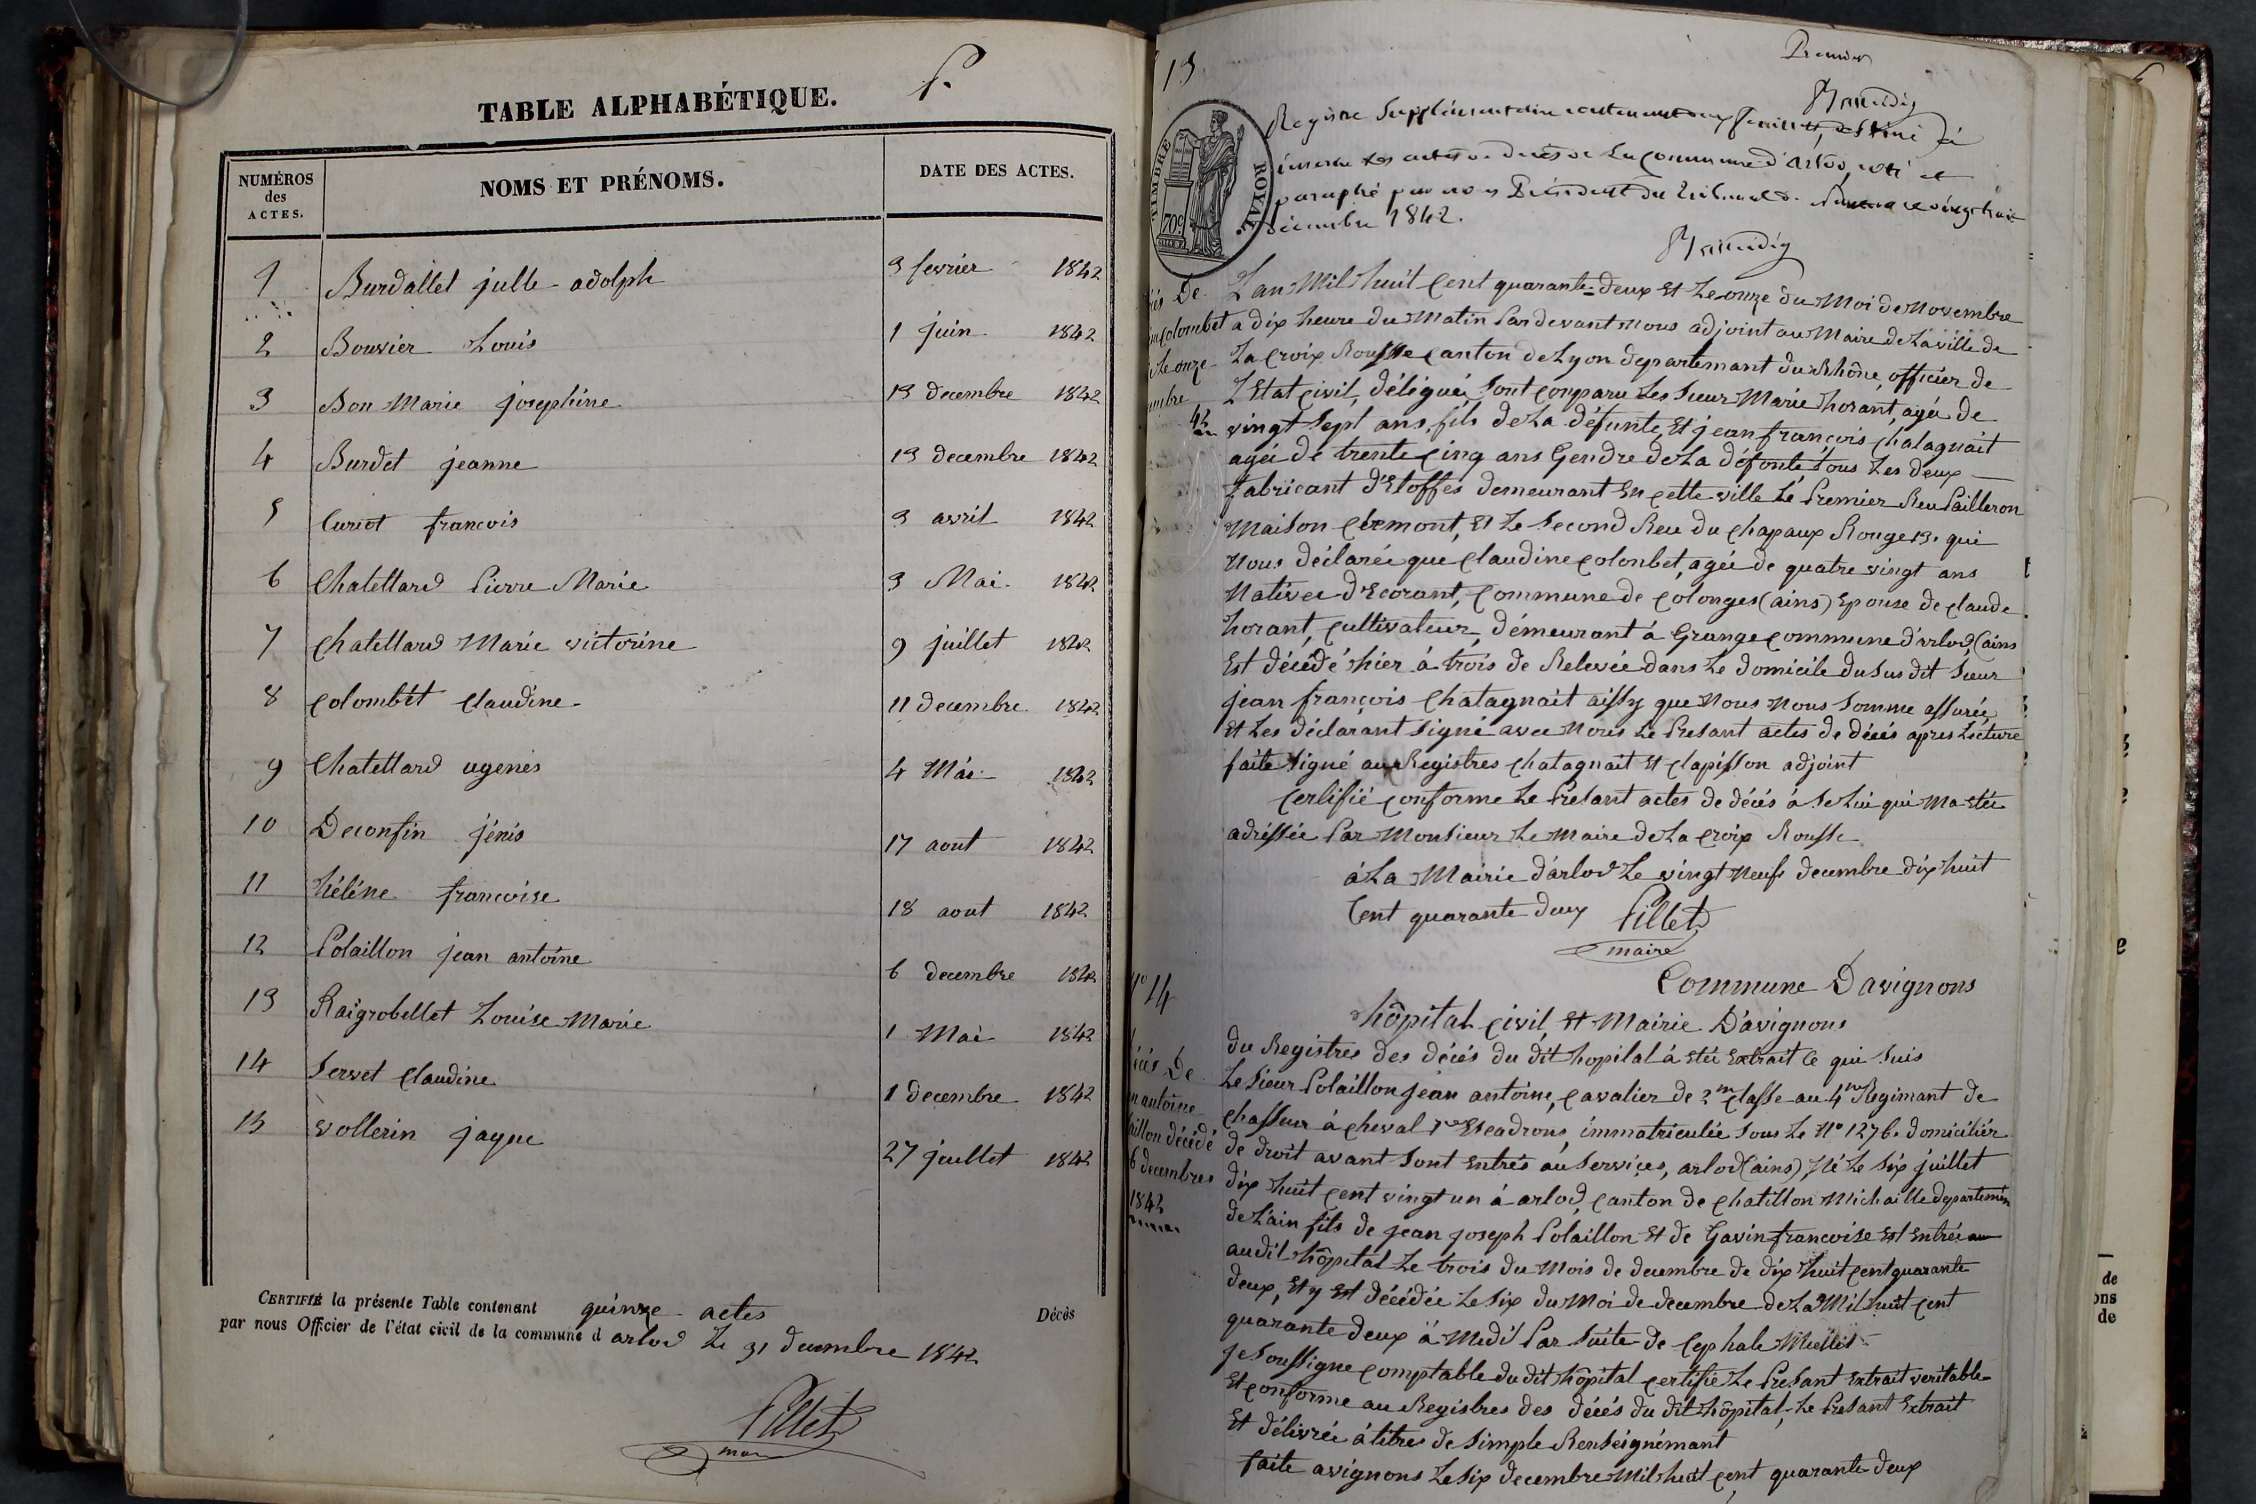 TABLE ALPHABÉTIQUE.
NUMÉROS des ACTES. NOMS ET PRÉNOMS. DATE DES ACTES.
1 Burdallet julle adolph 3 fevrier 1842
2 Bouvier Louis 1 juin 1842
3 Bon Marie josephine 13 decembre 1842
4 Burdet jeanne 13 decembre 1842
5 Curiot francois 3 avril 1842
6 Chatellard Pierre Marie 3 Mai 1842
7 Chatellard Marie victorine 9 juillet 1842
8 Colombet Claudine 11 decembre 1842
9 Chatellard ugenes 4 Mai 1842
10 Deconfin jénis 17 aout 1842
11 héléne francoise 18 aout 1842
12 Polaillon jean antoine 6 decembre 1842
13 Raigrobellet Louise Marie 1 Mai 1842
14 Servet Claudine 1 decembre 1842
15 vollerin jaque 27 juillet 1842
CERTIFIÉ la présente Table contenant quinze actes Décès
par nous Officier de l'état civil de la commune d arlod Le 31 decembre 1842
Pillet
maire
Premier
13
TIMBRE ROYAL.
70c.
Registre Supplémentaire contenant deux feuillets, destiné à
inscrire les actes de décès de la commune d'Arlod, coté et
paraphé par nous Président du Tribunal de Nantua le vingt huit
décembre 1842.
L'an Mil huit Cent quarante-deux Et Le onze du Moi de Novembre
a dix heure du Matin Pardevant Nous adjoint au Maire de La ville de
La Croix Rousse Canton de Lyon departemant du Rhône, officier de
L'Etat Civil, délégué, Sont Comparu Les Sieur Marie horant, agée de
vingt Sept ans, fils de La défunte, Et jean françois Chatagnait
agée de trente Cinq ans Gendre de La défonte tous Les deux
fabricant d'Etoffes demeurant En Cette ville Le Premier Reu Pailleron
Maison Clemont, Et Le Second Reu du Chapaux Rouge 13. qui
Nous déclarée que Claudine Colonbet, agée de quatre vingt ans
Nativee d'Ecorant, Commune de Colonges (ains) Epouse de Claude
horant, Cultivateur, démeurant á Grange Commune d'arlod, (ains
Est décédé hier á trois de Relevée dans Le domicile du Sus dit Sieur
jean françois Chatagnait aissy que Nous Nous Somme assurée
Et Les déclarant Signé avec Nous Le Presant actes de décés apres Lecture
faite Signé au Registres Chatagnait Et Clapisson adjoint
Certifié Conforme Le Presant actes de décés á Se Lui qui Ma étée
adréssée Par Monsieur Le Maire de La Croix Rousse
á La Mairie d'arlod Le vingt Neufs decembre dix huit
Cent quarante deux Pillet
maire
No 14
Commune Davignons
hôpital Civil Et Mairie D'avignons
du Registres des décés du dit hopital á étée Extrait Ce qui Suis
Le Sieur Polaillon jean antoine, Cavalier de 2me Classe au 4me Regimant de
Chasseur á Cheval 1re Escadrons, immatriculée Sous Le No 1276. domiciliér
de droit avant Sont Entrés au Services, arlod (ains), Né Le Six juillet
dix huit Cent vingt un á arlod, Canton de Chatillon Michaille departemen
de L'ain fils de jean joseph Polaillon Et de Gavin francoise Est Entrée au
audit hôpital Le trois du Mois de decembre de dix huit Cent quarante
deux, Et y Est décédée Le Six du Moi de decembre de La Mil huit Cent
quarante deux á Medi Par Suite de Cephale
je Soussigne Comptable du dit hôpital Certifie Le Presant Extrait veritable
Et Conforme au Registres des décés du dit hôpital, Le Presant Extrait
Et délivrée á titres de Simple Renseignémant
faite avignons Le Six decembre Mil huit Cent quarante deux